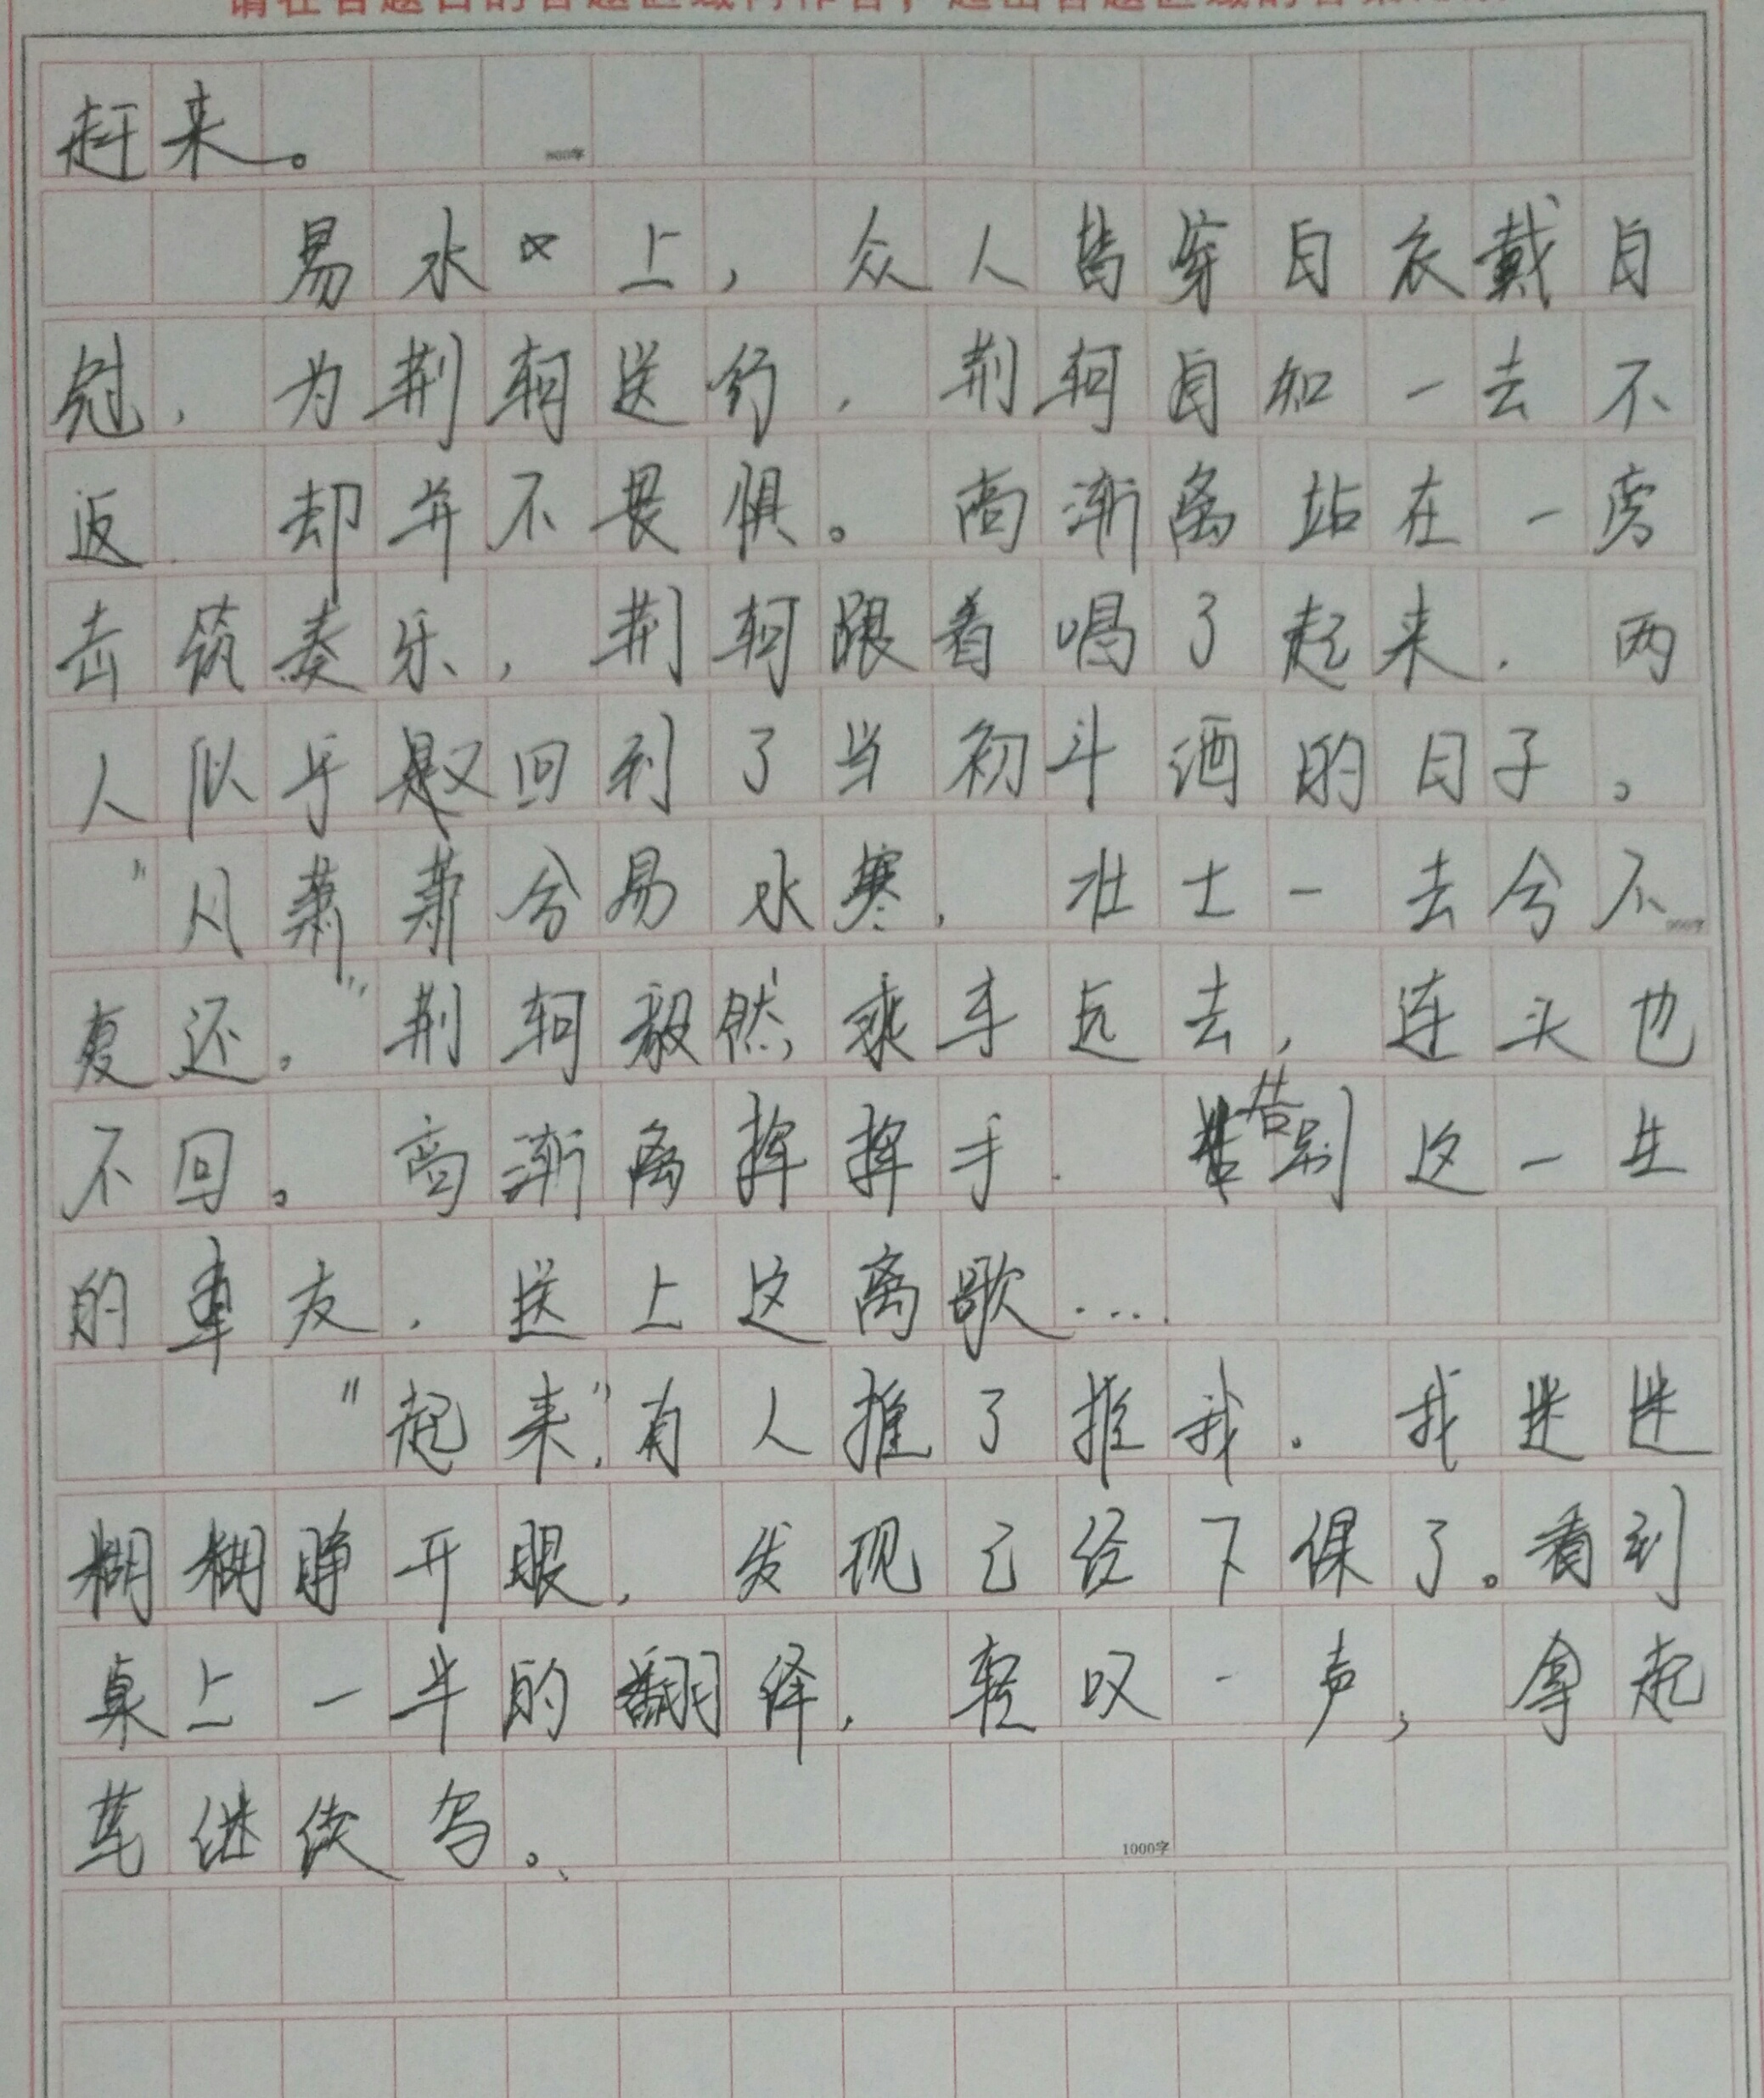 赶来。
易水上，众人皆穿白衣戴白
冠，为荆轲送行，荆轲自知一去不
返 却并不畏惧。高渐离站在一旁
击筑奏乐，荆轲跟着唱了起来，两
人似乎又回到了当初斗酒的日子。
"风萧萧兮易水寒，壮士一去兮不
复还。"荆轲毅然乘车远去，连头也
不回。高渐离挥挥手，告别这一生
的挚友，送上这离歌....
"起来，"有人推了推我，我迷迷
糊糊睁开眼，发现已经下课了。看到
桌上一半的翻译，轻叹一声，拿起
笔继续写。
1000字